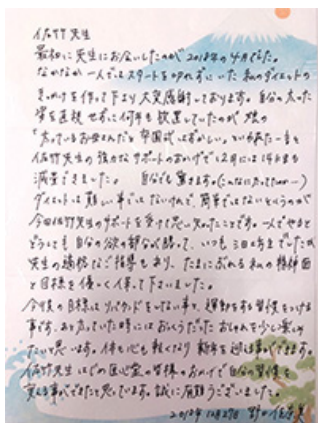 佐竹先生
最初に先生にお会いしたのが2018年の4月でした。
なかなか一人ではスタートを切れずにいた私のダイエットの
きっかけを作って下さり大変感謝しております。自分の太った
姿を直視せずに何年も放置していたのが、娘の
「太っているお母さんだと卒園式はずかしい」といわれた一言と
佐竹先生の強力なサポートのおかげで12月には
減量できました。自分でも驚きます。(こんなに太ってたの…)
ダイエットは難しい事ではないけれど、簡単ではないというのが
今回佐竹先生のサポートを受けて思い知ったことです。一人でやると
どうしても自分の欲の部分が勝って、いつも三日坊主でしたが
先生の適格なご指導もあり、たまにぶれる私の精神面
と目標を優しく保って下さいました。
今後の目標はリバウンドをしない事と、運動をする習慣をつける
事です。太っていた時にはおっくうだったおしゃれを少し楽しみ
たいと思います。体も心も軽くなり新年を迎える事ができます。
佐竹先生はじめ匠心堂の皆様のおかげで自分の習慣を
変える事ができたと思っています。誠に有難うございました。
2018年12月27日